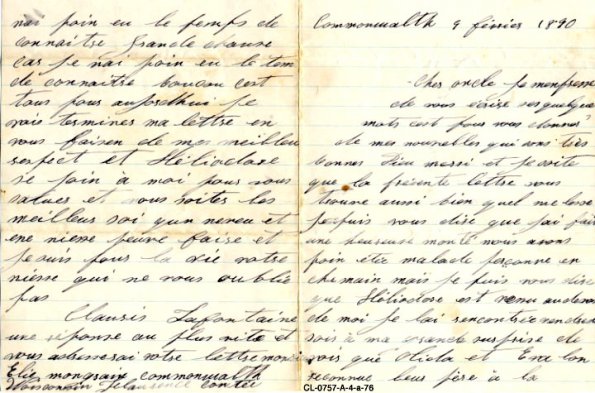 Commonwualth 9 février 1890
Cher oncle je menpresse
de vous écrire ses quelque
mots cest pour vous donner
de mes nouvelles qui sont très
bonnes Dieu merci et je soite
que la présente lettre vous
trouve aussi bien quel me lesse
je puis vous dire que j'ai fait
une heureuse monté nous avons
poin été malade personne en
chemain mais je puis vous dire
que Héliodore est venu audevan
de moi je lai rencontré vendredi
soir à ma grande surprise de
vois que et Eva lon
reconnue leur père à la
nai poin eu le temps de
connaitre grande chause
cas je nai poin eu le tem
de connaitre boucou cest
tous pour aujordhui je
vaie terminer ma lettre en
vous faisen de mes meilleu
respect et Héliodore
se join à moi pour vous
saluer et vous soiter les
meilleur soi qun neveu et
ene niese peuve faire et
je suis pour la vie votre
niesse qui ne vous oublie
pas
Clausis Lafontaine
une réponse au plus vite et
vous adresserai votre lettre monsieu
Elie mongrain commonwualth
Wisconsin Florence contée
CL-0757-A-4-a-76